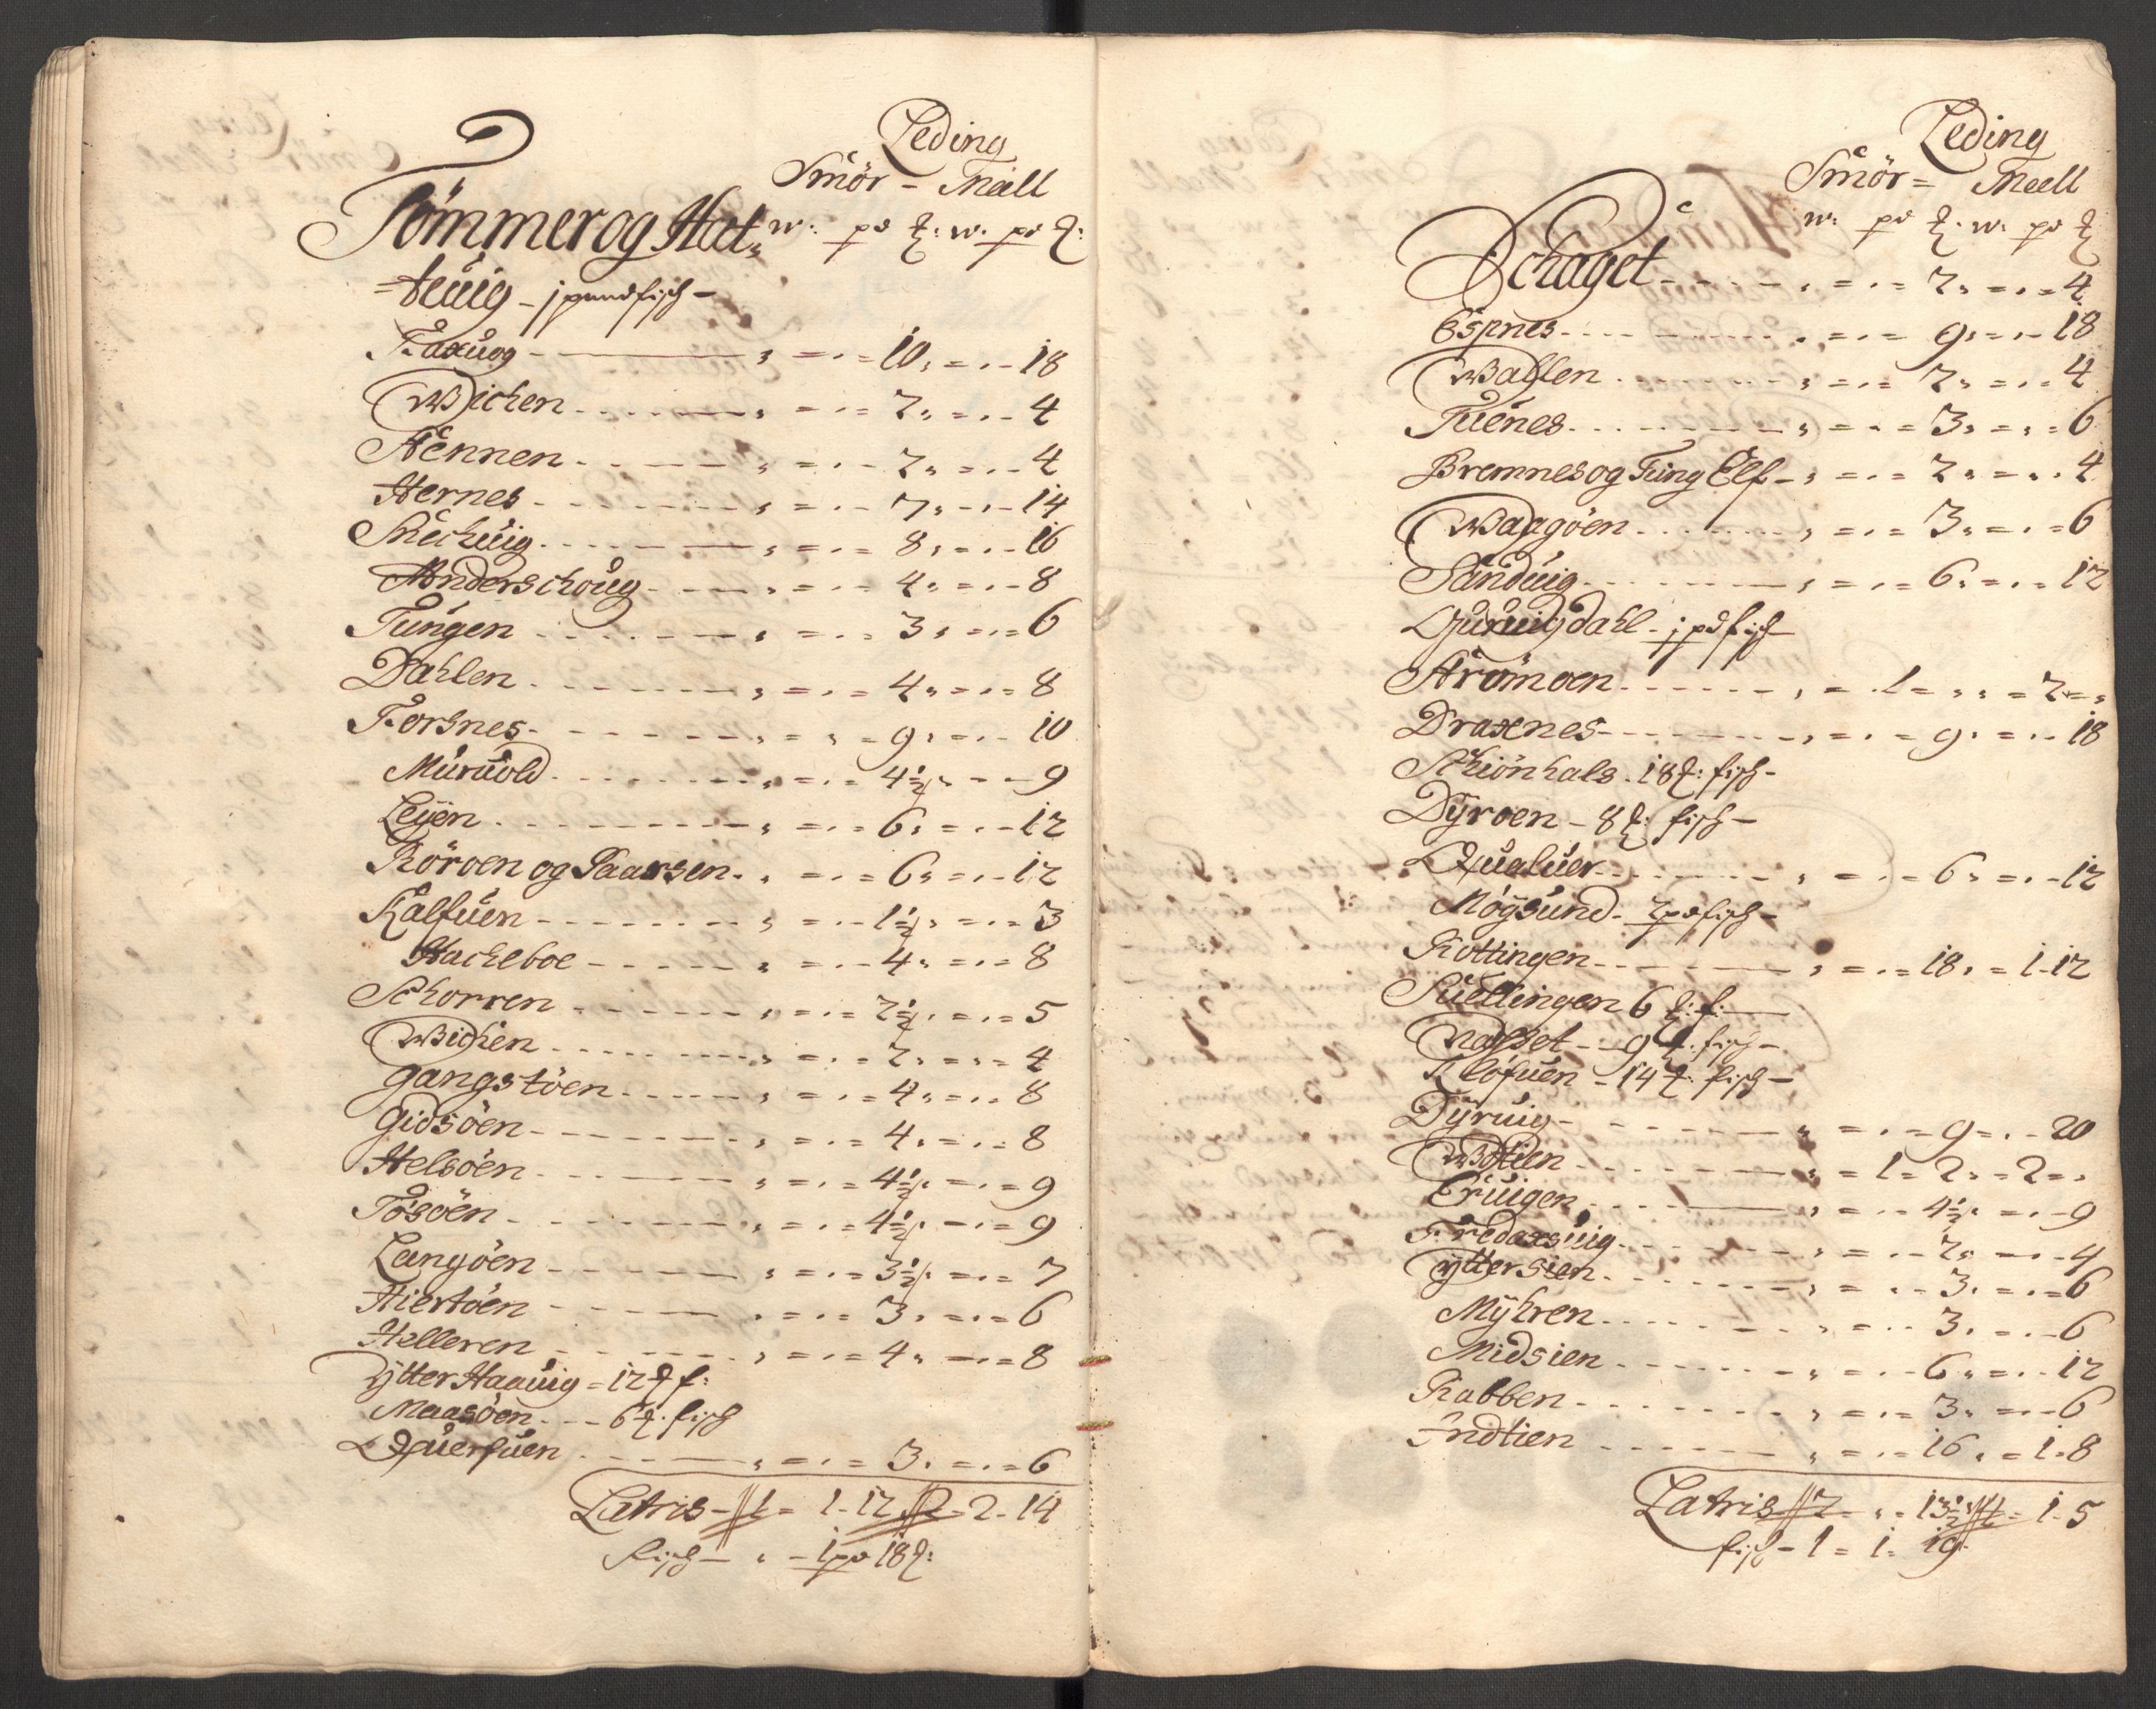 Leding
Smör - Meell
Tömmer og Hat= w: pd ℔: w. pd ℔:
=teuig - j pund fisch -
Faxuog - " = " = 10 " = " - 18
Wichen - " = " = 2 " = " - 4
Hennen - " = " - 2 " = " - 4
Hernes - " = " - 7 " - " - 14
Skechuig - " = " = 8 " = " - 16
Anderschoug - " = " = 4 " = " - 8
Tungen - " = " = 3 " = " = 6
Dahlen - " = " = 4 " = " = 8
Forsnes - " = " = 9 " = " - 10
Muruold - " = " = 4½ " - - 9
Leyen - " = " = 6 " = " - 12
Röroen og Saarsen - " = " = 6 " = " - 12
Kalfuen - " = " - 1½ " = " = 3
Hacheboe - " = " - 4 " = " = 8
Schorren - " = " = 2½ " = " = 5
Wichen - " = " = 2 " = " = 4
Gangstöen - " = " = 4 " = " = 8
Gidsöen - " = " = 4 " = " = 8
Helsöen - " = " = 4½ " = " = 9
Tosöen - " = " = 4½ " - " = 9
Langöen - " = " = 3½ " = " = 7
Hiertöen - " = " = 3 " = " = 6
Helleren - " = " = 4 " = " = 8
Ytter Haauig = 12 ℔ f:
Maasöen - - 6 ℔: fisch
Querfuen - " = " = 3 " = " = 6
Latris - // 1 = 1 - 12 // 2 = 2 - 14
Fisch - " - 1 pd 18 ℔:
Leding
Smör = Meell
w: pd ℔: w: pd ℔
Schaget - " = " = 2 " = " = 4
Espnes - " = " = 9 " = " - 18
Wallen - " = " = 2 " = " = 4
Tuenes - " = " = 3 " = " = 6
Bremnes og Tung Elf - " = " = 2 " = " = 4
Waagöen - " = " = 3 " = " = 6
Sanduig - " = " = 6 " = " = 12
Gjuruigdahl - j pd fisch
Strömoen - " = 1 = " " = 2 = "
Draxnes - " = " = 9 " = " - 18
Schiönhals - 18 ℔: fisch -
Dyroen - 8 ℔: fisch -
Qualuer - " = " = 6 " = " - 12
Möysund - 2 pd fisch -
Rottingen - " = " = 18 " = 1 - 12
Suellingen 6 ℔: f:
Nasset - 9 ℔: fisch -
Klöfuen - 14 ℔: fisch -
Dyruig - " = " = 9 = " - 20
Wottien - " = 1 = 2 " = 2 = "
Eruigen - " = " = 4½ " = " - 9
Fredaxsuig - " = " - 2 " = " - 4
Yttersien - " = " - 3 " = " = 6
Myhren - " = " - 3 " = " - 6
Midsien - " = " - 6 " = " - 12
Rabben - " = " = 3 " = " - 6
Indtien - " = " = 16 " = 1 = 8
Latris // 2 = " = 13½ // 4 = 1 - 5
fisch - 1 = 1 = 19